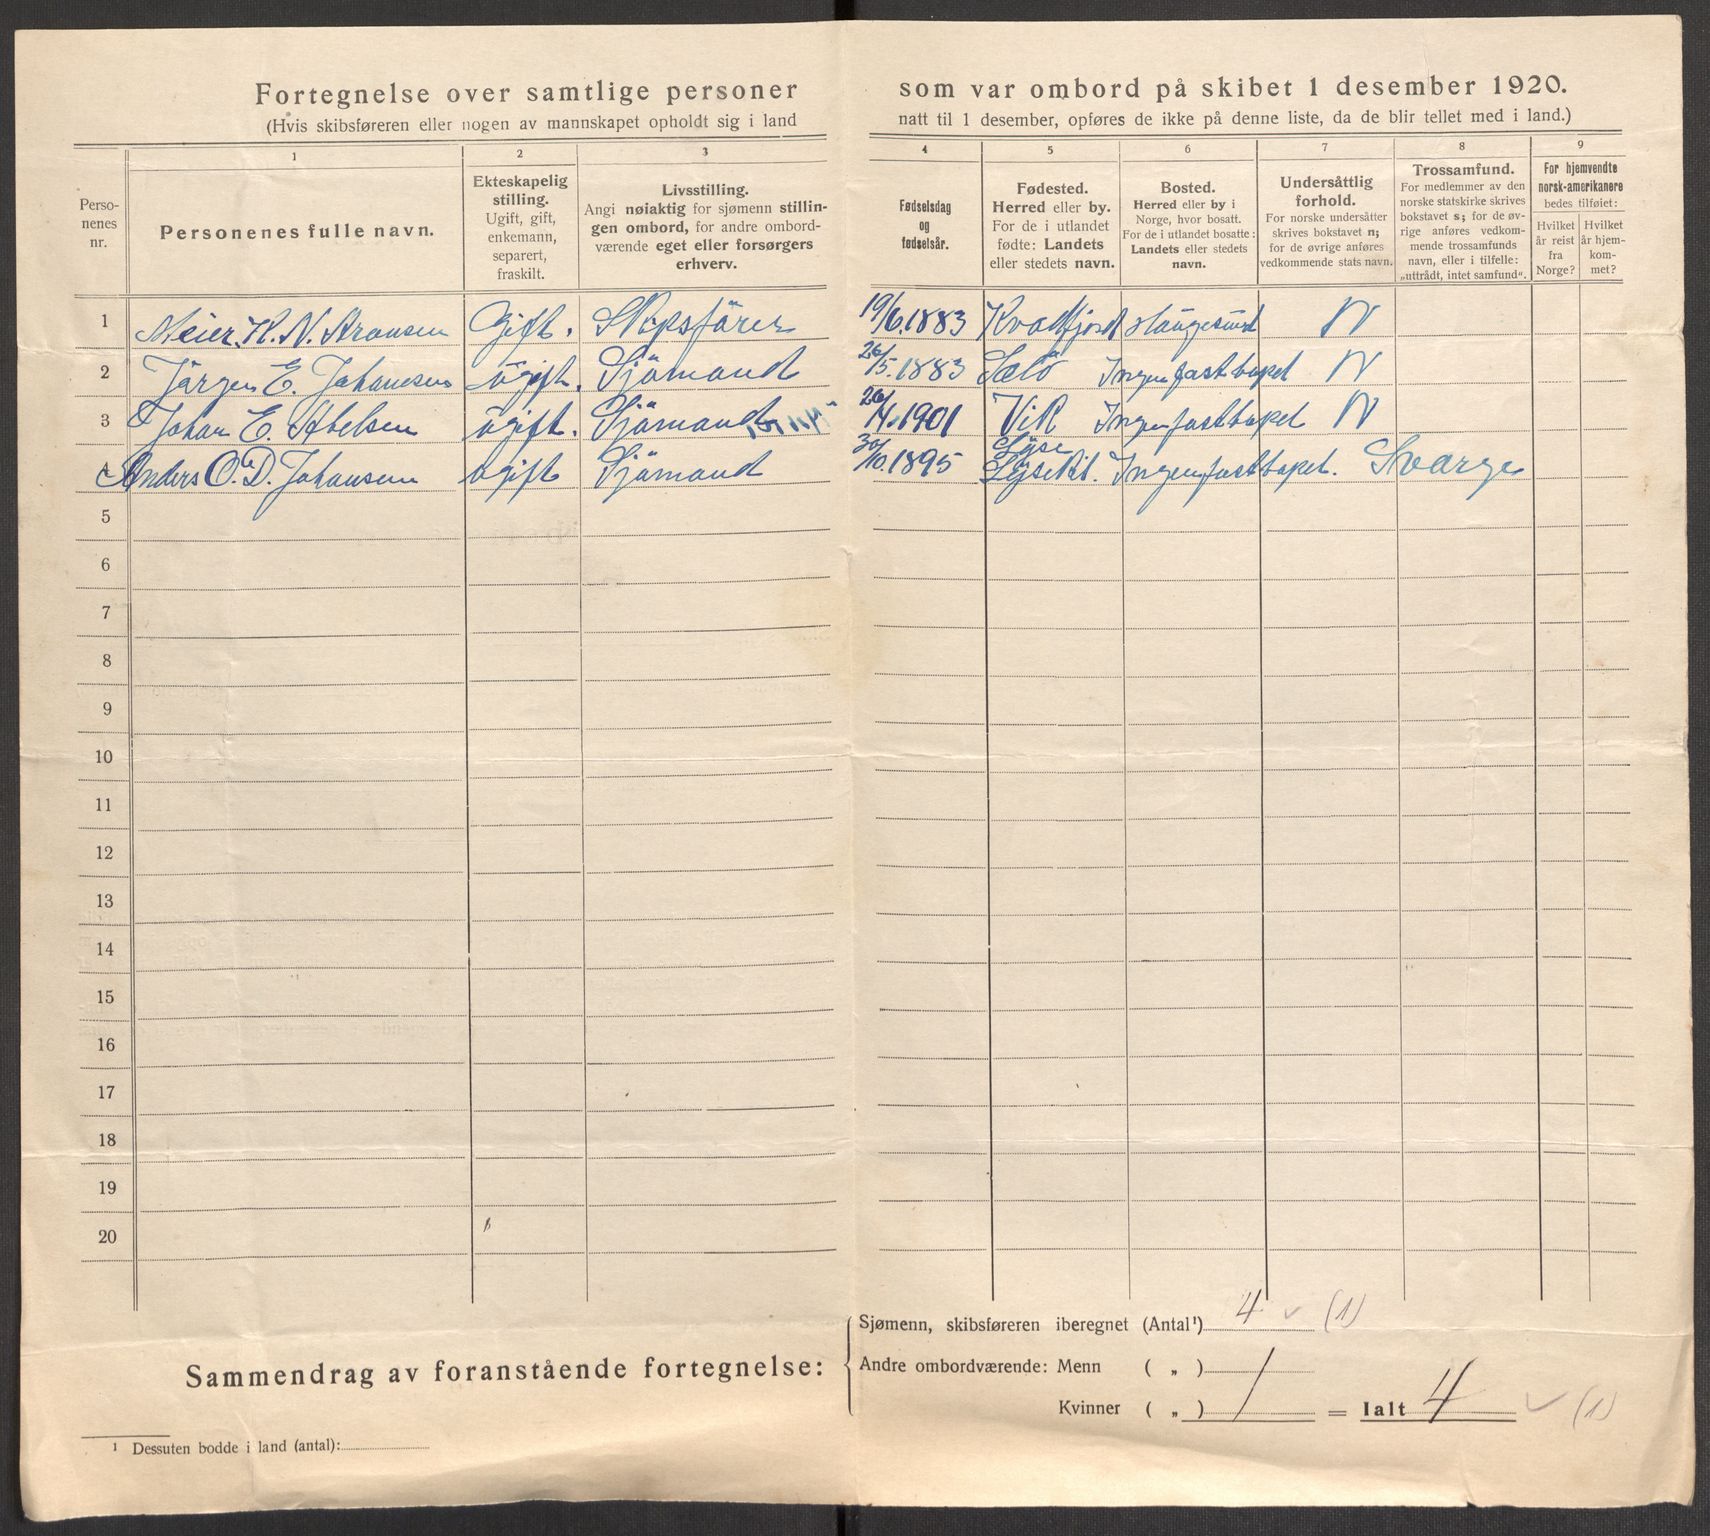 Fortegnelse over samtlige personer som var ombord på skibet 1 desember 1920.
(Hvis skibsføreren eller nogen av mannskapet opholdt sig i land natt til 1 desember, opføres de ikke på denne liste, da de blir tellet med i land.)
Personenes nr.
1
Personenes fulle navn.
2
Ekteskapelig
stilling.
Ugift, gift,
enkemann,
separert,
fraskilt.
3
Livsstilling.
Angi nøiaktig for sjømenn stillin-
gen ombord, for andre ombord-
værende eget eller forsørgers
erhverv.
4
Fødselsdag
og
fødselsår.
5
Fødested.
Herred eller by.
For de i utlandet
fødte: Landets
eller stedets navn.
6
Bosted.
Herred eller by i
Norge, hvor bosatt.
For de i utlandet bosatte:
Landets eller stedets
navn.
7
Undersåttlig
forhold.
For norske undersåtter
skrives bokstavet n;
for de øvrige anføres
vedkommende stats navn.
8
Trossamfund.
For medlemmer av den
norske statskirke skrives
bokstavet s; for de øv-
rige anføres vedkom-
mende trossamfunds
navn, eller i tilfelle:
„uttrådt, intet samfund“.
9
For hjemvendte
norsk-amerikanere
bedes tilføiet:
Hvilket
år reist
fra
Norge?
Hvilket
år hjem-
kom-
met?
1 Meier. K. N. gift. Skipsförer 19/6.1883 Haugesund N
2 Jörgen E. Johansen ugift. Sjömand 26/5.1883 Ingen fast bopel N
3 Johan E. Abelsen ugift. Sjömand 26/4.1901 Ingen fast bopel N
4 Anders O. D. Johansen ugift Sjömand 30/10.1895 Lyse
Lysekil. Ingen fast bopel. Sverge
5
6
7
8
9
10
11
12
13
14
15
16
17
18
19
20
Sammendrag av foranstående fortegnelse:
Sjømenn, skibsføreren iberegnet (Antal¹) 4 ✓ (1)
Andre ombordværende: Menn ( „ ) /
Kvinner ( „ ) / = Ialt 4 ✓ (1)
¹ Dessuten bodde i land (antal):